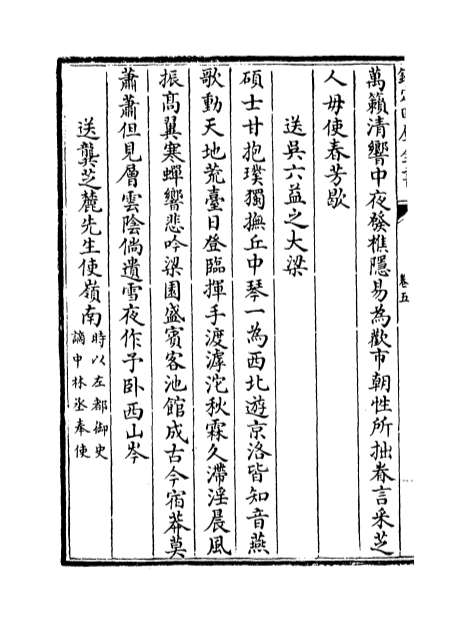 萬籟清響中夜發樵隱易為歡市朝性所拙眷言采芝
人毋使春芳歇
送吳六益之大梁
碩士甘抱璞獨撫丘中琴一為西北遊京洛皆知音燕
歌動天地荒臺日登臨揮手渡滹沱秋霖久滯淫晨風
振高翼寒蟬響悲吟梁園盛賓客池館成古今宿莽莫
蕭蕭但見層雲陰倘遺雪夜作予卧西山岑
送龔芝麓先生使嶺南時以左都御史
謫中林丞奉使
卷五